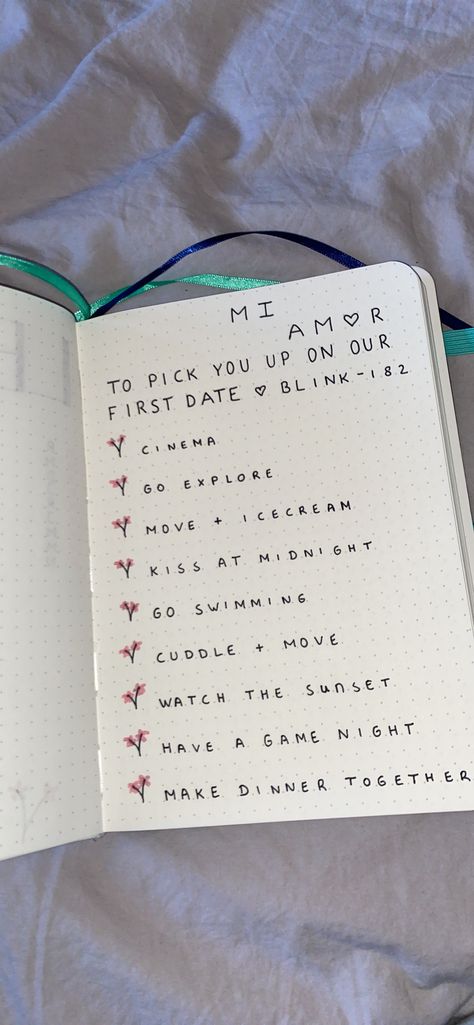 MI
AM♡R
TO PICK YOU UP ON OUR
FIRST DATE ♡ BLINK-182
CINEMA
GO EXPLORE
MOVE + ICECREAM
KISS AT MIDNIGHT
GO SWIMMING
CUDDLE + MOVE
WATCH THE SUNSET
HAVE A GAME NIGHT
MAKE DINNER TOGETHER